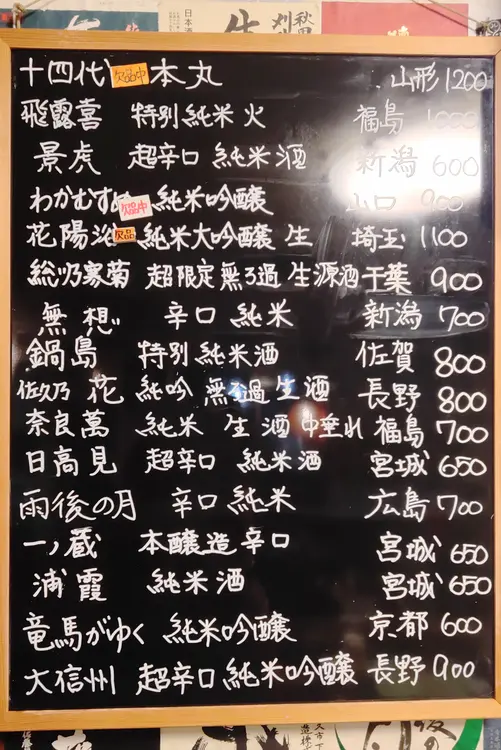 十四代 欠品中 本丸 山形 1200
飛露喜 特別純米 火 福島 1000
景虎 超辛口 純米酒 新潟 600
わかむすめ 欠品中 純米吟醸 山口 900
花陽浴 欠品 純米大吟醸 生 埼玉 1100
総乃寒菊 超限定無ろ過生源酒 千葉 900
無想 辛口 純米 新潟 700
鍋島 特別純米酒 佐賀 800
佐久乃花 純吟 無ろ過生酒 長野 800
奈良萬 純米 生酒 中垂れ 福島 700
日高見 超辛口 純米酒 宮城 650
雨後の月 辛口 純米 広島 700
一ノ蔵 本醸造 辛口 宮城 650
浦霞 純米酒 宮城 650
竜馬がゆく 純米吟醸 京都 600
大信州 超辛口純米吟醸 長野 900